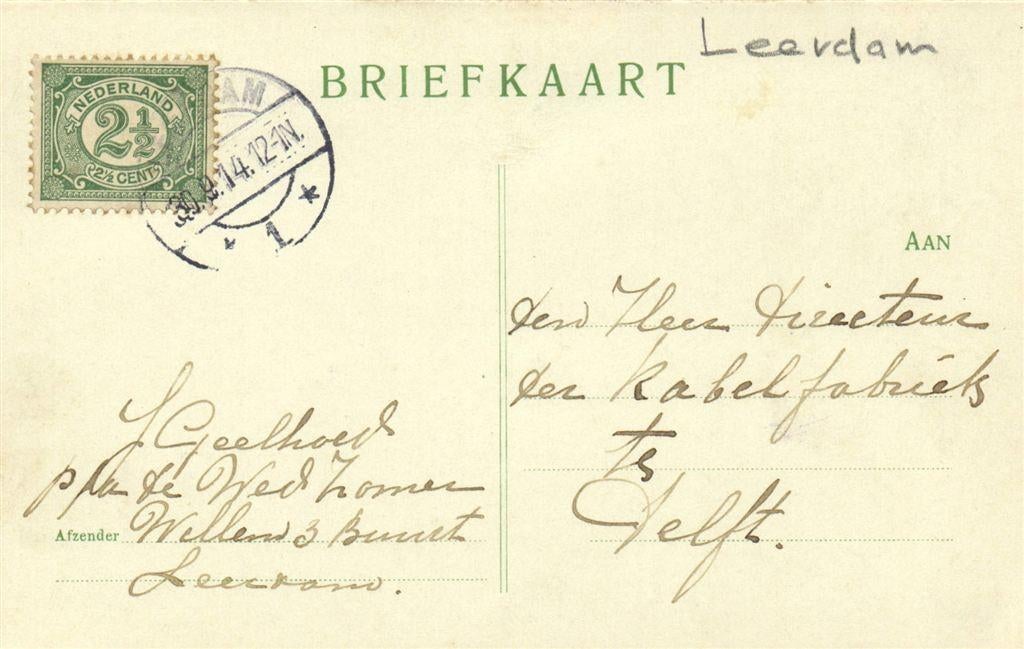 Leerdam
BRIEFKAART
NEDERLAND
2½
2½ CENT
AM
30.9.14.12-1N.
1
AAN
den Heer Directeur
der Kabelfabriek
te
Delft.
J Geelhoed
p/a de Wed Zomer
Afzender Willem 3 Buurt
Leerdam.